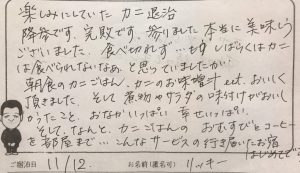 楽しみにしていた カニ退治
降参です、完敗です、参りました 本当に美味しう
ございました。食べ切れず…も しばらくはカニ
は食べられないなぁ、と思っていましたが
朝食のカニごはん、カニのお味噌汁 ect. おいしく
頂きました。そして 煮物やサラダの味付けがおいし
かったこと、おなかいっぱい 幸せいっぱい。
そして、なんと、カニごはんの おむすびとコーヒー
を部屋まで…こんなサービスの行き届いたお宿
はじめてです
ご宿泊日 11/12. お名前(匿名可) リッキー